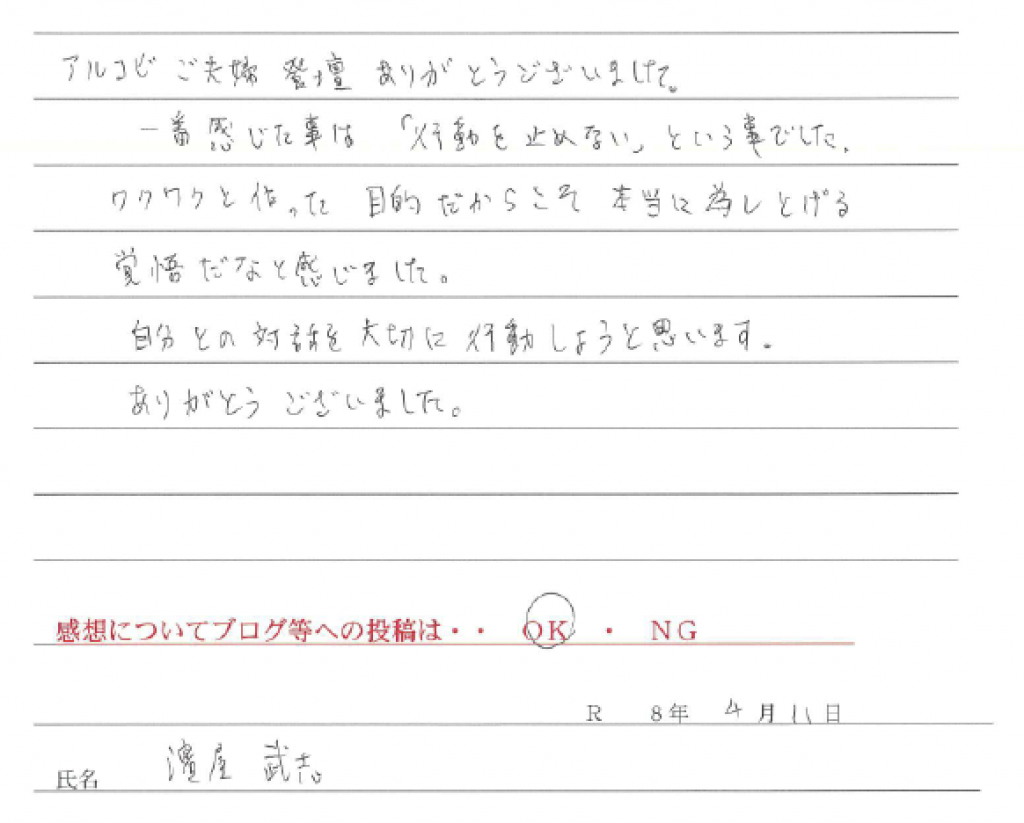 アルコビご夫婦 登壇 ありがとうございました。
一番感じた事は 「行動を止めない」という事でした。
ワクワクと作った 目的だからこそ 本当に為しとげる
覚悟だなと感じました。
自分との対話を大切に行動しようと思います。
ありがとう ございました。
感想についてブログ等への投稿は・・ OK ・ NG
R 8年 4月11日
氏名 濵屋 武志